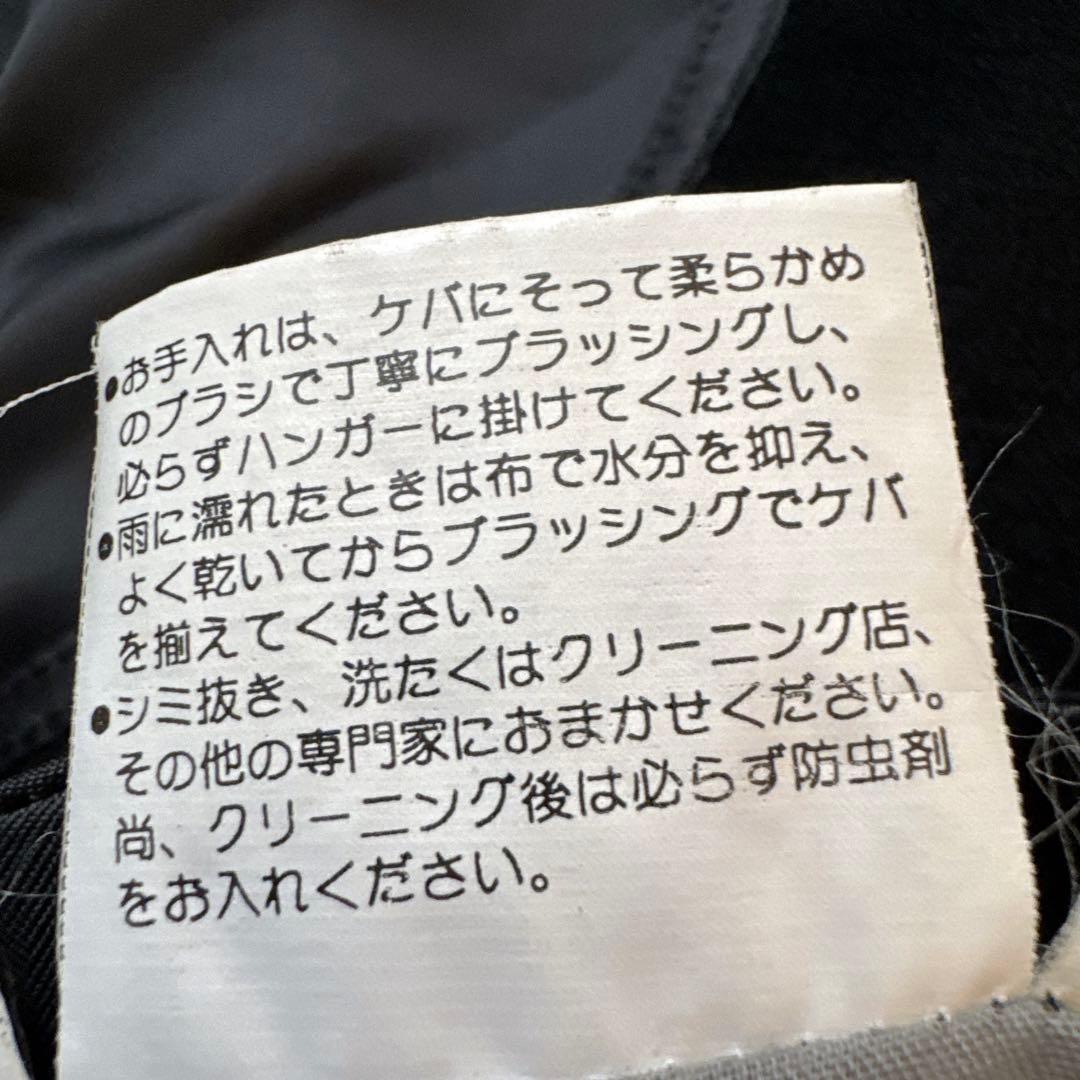 ●お手入れは、ケバにそって柔らかめ
のブラシで丁寧にブラッシングし、
必らずハンガーに掛けてください。
●雨に濡れたときは布で水分を抑え、
よく乾いてからブラッシングでケバ
を揃えてください。
●シミ抜き、洗たくはクリーニング店、
その他の専門家におまかせください。
尚、クリーニング後は必らず防虫剤
をお入れください。